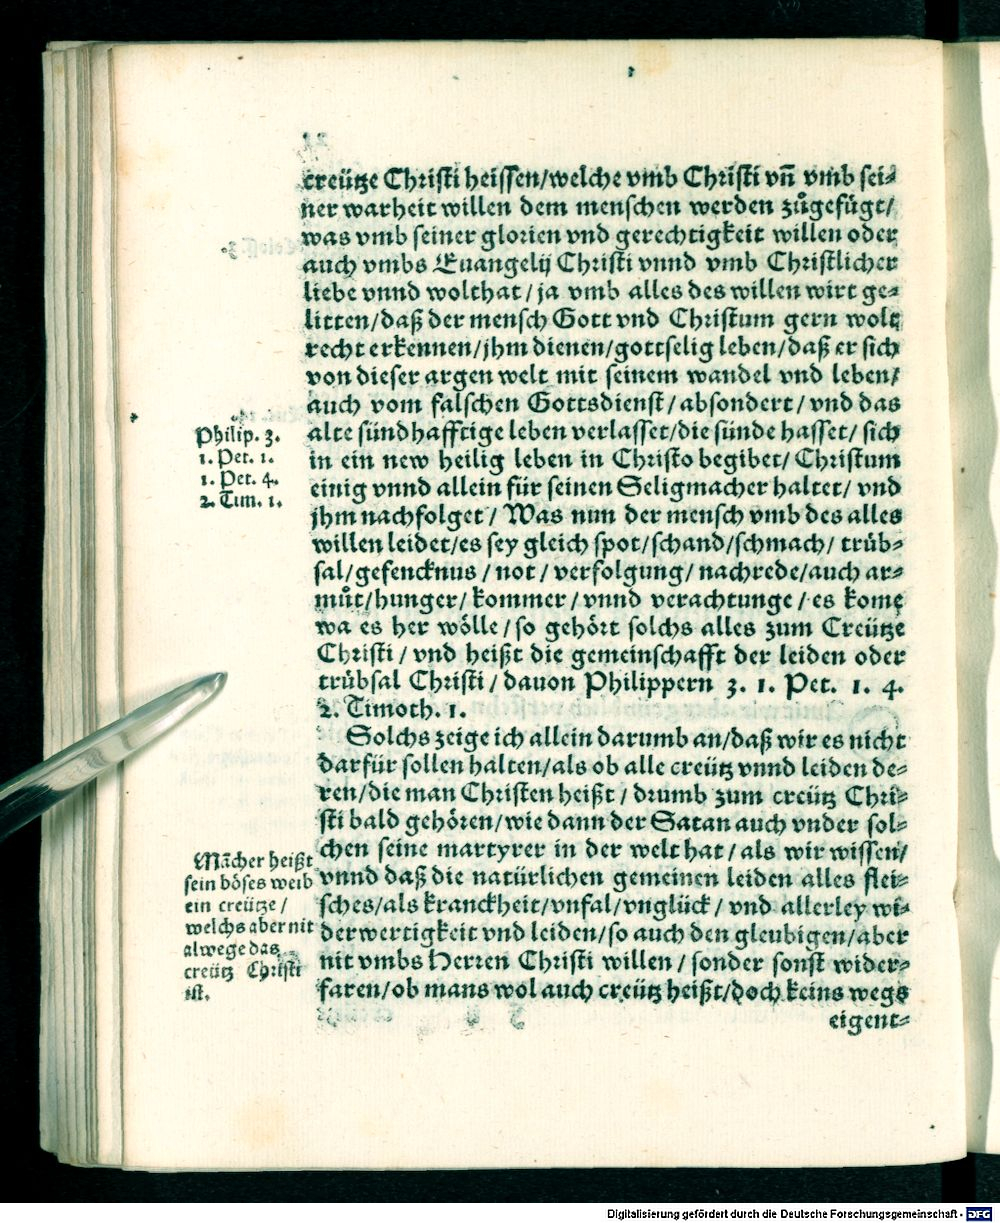 creütze Christi heissen/welche vmb Christi vñ vmb sei⸗
ner warheit willen dem menschen werden zůgefůgt/
was vmb seiner glorien vnd gerechtigkeit willen oder
auch vmbs Euangelij Christi vnnd vmb Christlicher
liebe vnnd wolthat/ja vmb alles des willen wirt ge⸗
litten/daß der mensch Gott vnd Christum gern wolt
recht erkennen/jhm dienen/gottselig leben/daß er sich
von dieser argen welt mit seinem wandel vnd leben/
auch vom falschen Gottsdienst/absondert/vnd das
alte sündhafftige leben verlasset/die sünde hasset/sich
in ein new heilig leben in Christo begibet/Christum
einig vnnd allein für seinen Seligmacher haltet/vnd
jhm nachfolget/Was nun der mensch vmb des alles
willen leidet/es sey gleich spot/schand/schmach/trůb⸗
sal/gefencknus/not/verfolgung/nachrede/auch ar⸗
můt/hunger/kommer/vnnd verachtunge/es kome
wa es her wölle/so gehört solchs alles zum Creütze
Christi/vnd heißt die gemeinschafft der leiden oder
trůbsal Christi/dauon Philippern 3. 1. Pet. 1. 4.
2. Timoth. 1.
Philip. 3.
1. Pet. 1.
1. Pet. 4.
2. Tim. 1.
Solchs zeige ich allein darumb an/daß wir es nicht
darfür sollen halten/als ob alle creütz vnnd leiden de⸗
ren/die man Christen heißt/drumb zum creütz Chri⸗
sti bald gehören/wie dann der Satan auch vnder sol⸗
chen seine martyrer in der welt hat/als wir wissen/
vnnd daß die natürlichen gemeinen leiden alles flei⸗
sches/als kranckheit/vnfal/vnglück/vnd allerley wi⸗
derwertigkeit vnd leiden/so auch den gleubigen/aber
nit vmbs Herren Christi willen/sonder sonst wider⸗
faren/ob mans wol auch creütz heißt/doch keins wegs
eigent⸗
Mãcher heißt
sein böses weib
ein creütze/
welchs aber nit
alwege das
creütz Christi
ist.
Digitalisierung gefördert durch die Deutsche Forschungsgemeinschaft - DFG